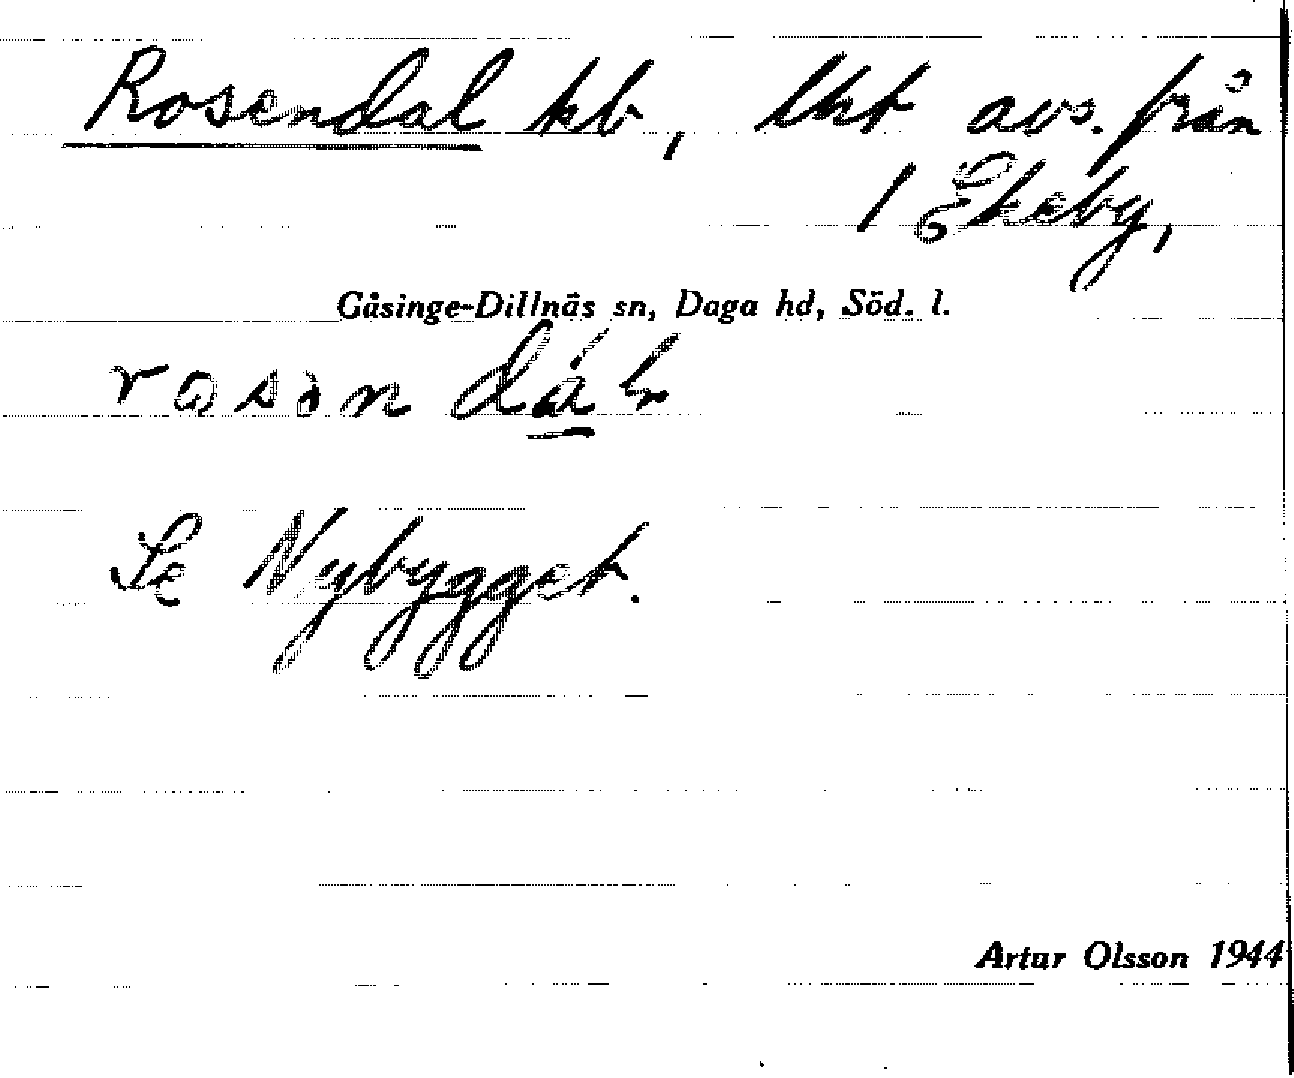 Rosendal kb, lht avs. från
1 Ekeby,
Gåsinge-Dillnäs sn, Daga hd, Söd. l.
Se Nybygget.
Artur Olsson 1944